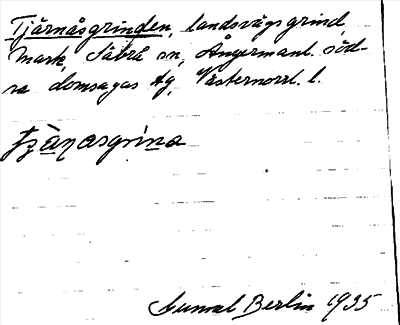 Tjärnåsgrinden, landsvägsgrind
Mark, Säbrå sn, Ångermanl. söd-
ra domsagas tg, Västernorrl. l.
Gunnal Berlin 1935